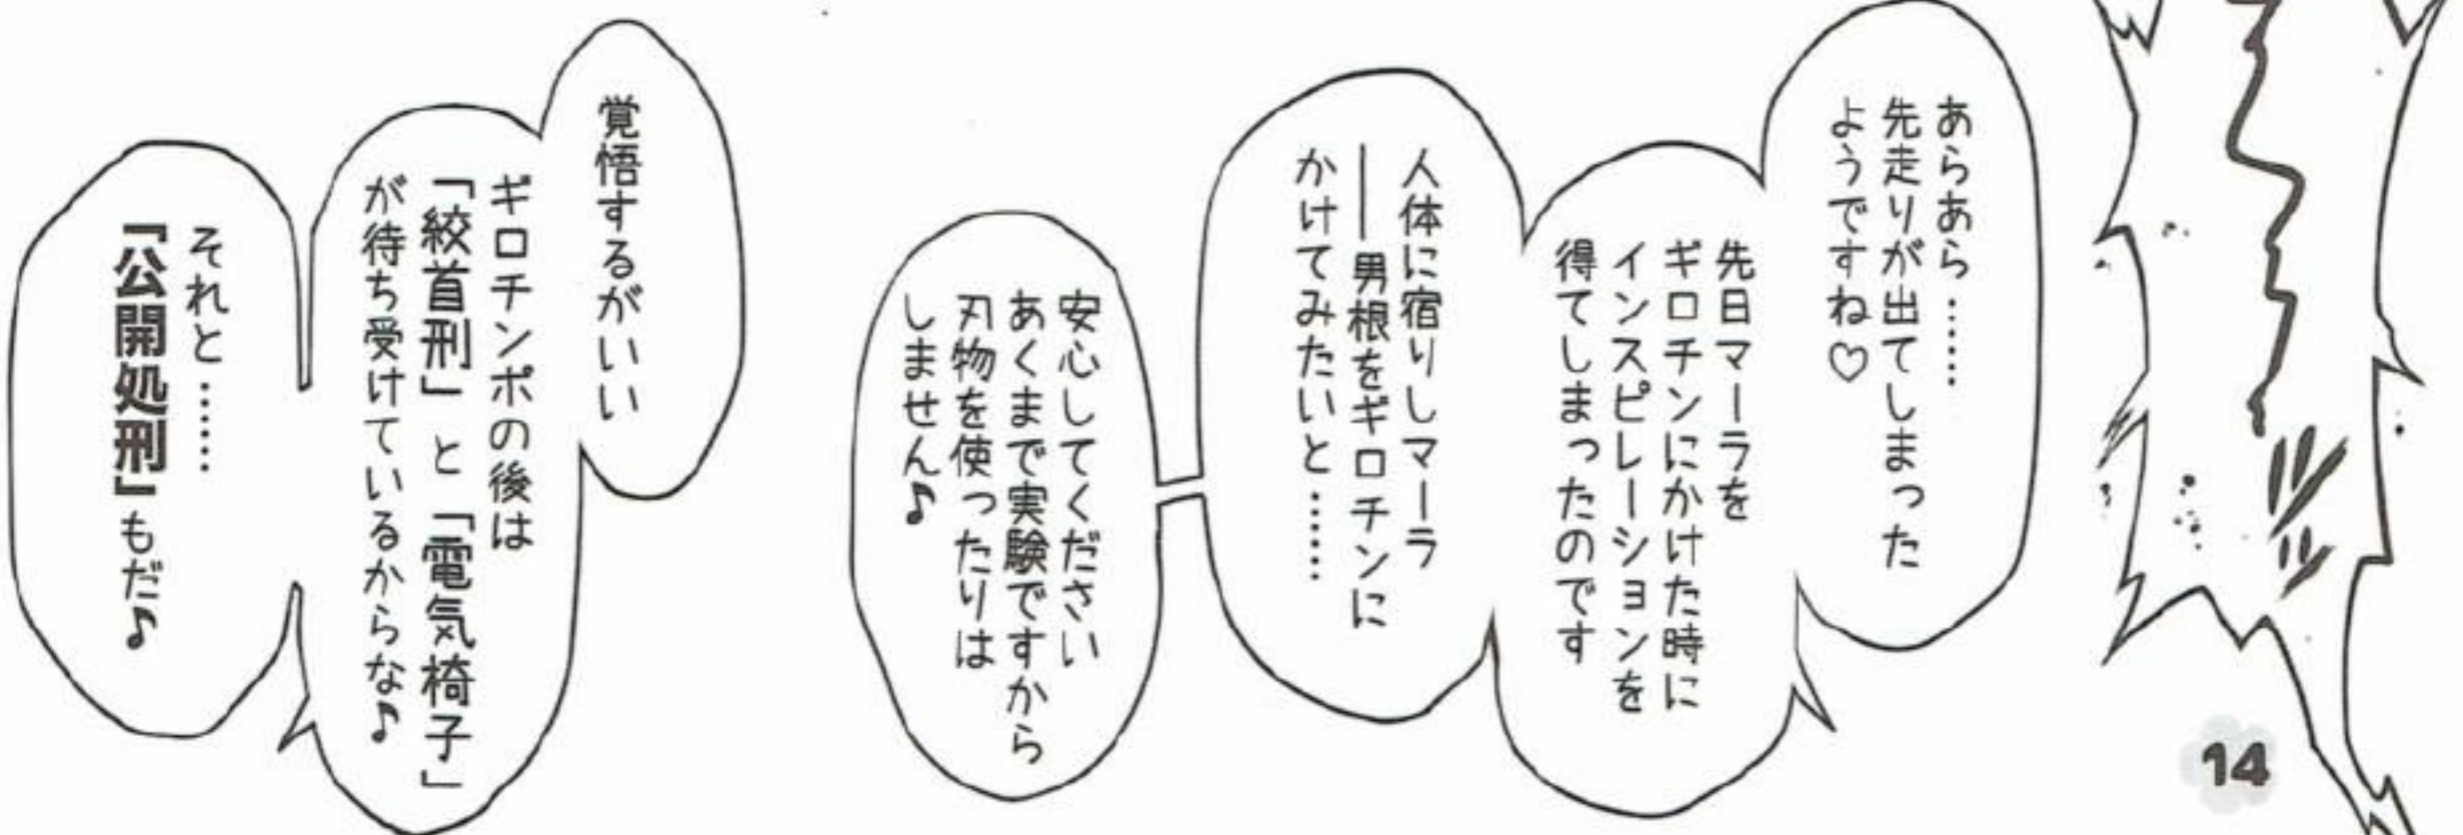 あらあら……
先走りが出てしまった
ようですね♡
先日マーラを
ギロチンにかけた時に
インスピレーションを
得てしまったのです
人体に宿りしマーラ
――男根をギロチンに
かけてみたいと……
安心してください
あくまで実験ですから
刃物を使ったりは
しません♪
覚悟するがいい
ギロチンポの後は
「絞首刑」と「電気椅子」
が待ち受けているからな♪
それと……
『公開処刑』もだ♪
14